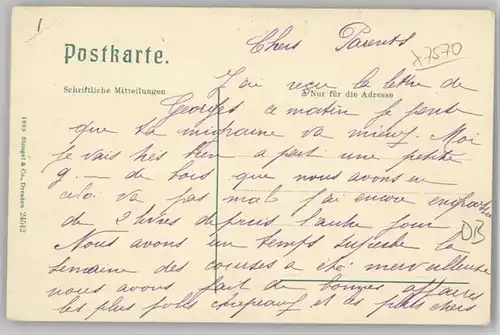 1
Chers Parents
x7570
Postkarte.
J'ai reçu la lettre de
Schriftliche Mitteilungen
Nur für die Adresse
Georges ce matin je pense
que ta migraine va mieux. Moi
je vais très bien a part une petite
g— de bois que nous avons eu
cela va pas mal j'ai encore
de 2 livres depuis l'autre jour
DB
Nous avons un temps la
semaine des courses a été merveilleuse
nous avons fait de bonnes affaires
les plus jolis chapeaux et les plus chers
1905 Stengel & Co., Dresden 24542